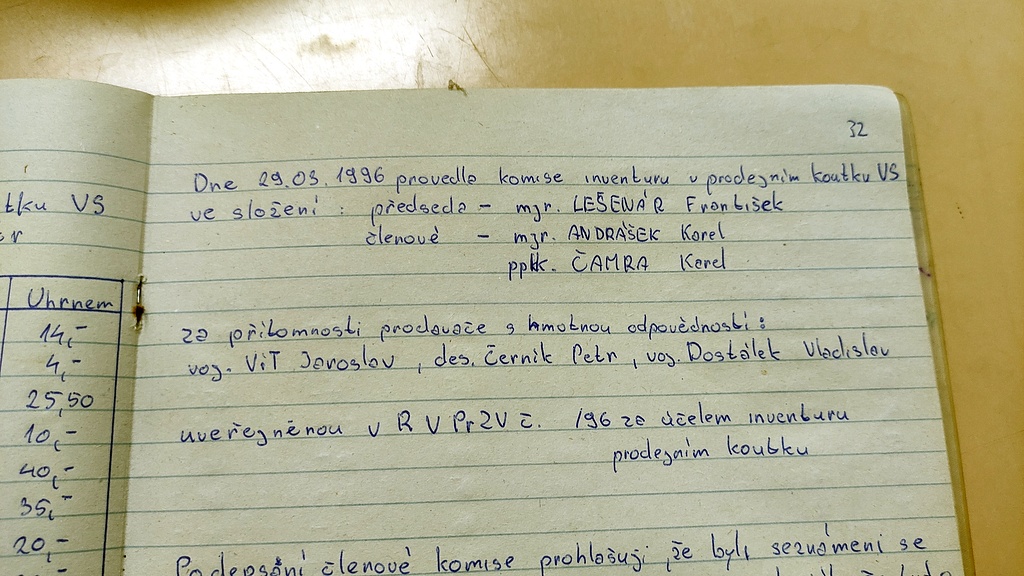 tku VS
Uhrnem
14,-
4,-
25,50
10,-
40,-
35,-
20,-
32
Dne 29.03.1996 provedla komise inventuru v prodejním koutku VS
ve složení : předseda - mjr. LEŠENÁR František
členové - mjr. ANDRÁŠEK Karel
pplk. ČAMRA Karel
za přítomnosti prodavače s hmotnou odpovědností :
voj. VÍT Jaroslav , des. Černík Petr , voj. Dostálek Vladislav
uveřejněnou v R V PrZV č. /96 za účelem inventuru
prodejním koutku
Podepsání členové komise prohlašují , že byli seznámeni se